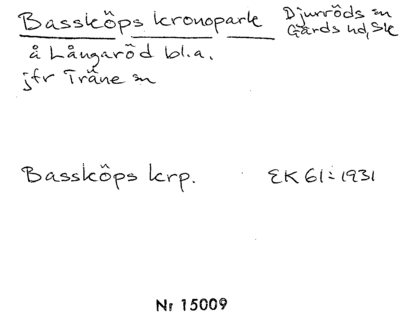 Bassköps kronopark Djurröds sn
Gärds hd, Sk
å Långaröd bl.a.
jfr Träne sn
Bassköps krp. EK 61: 1931
Nr 15009